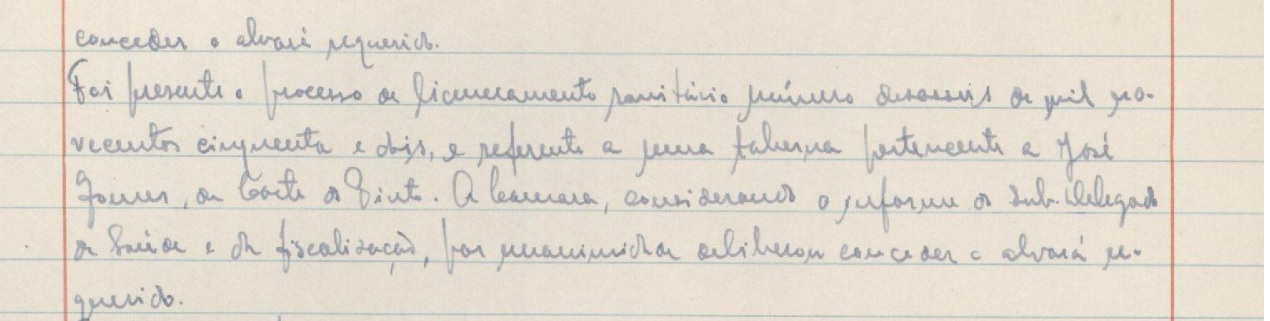 conceder o alvará requerido.
Foi presente o processo de licenceamento sanitário número dezasseis de mil no-
vecentos cinquenta e dois, e referente a uma taberna pertencente a José
Gomes, de Corte do Pinto. A Camara, considerando o informe do sub-delegado
de Saúde e da fiscalização, por unanimidade deliberou conceder o alvará re-
querido.